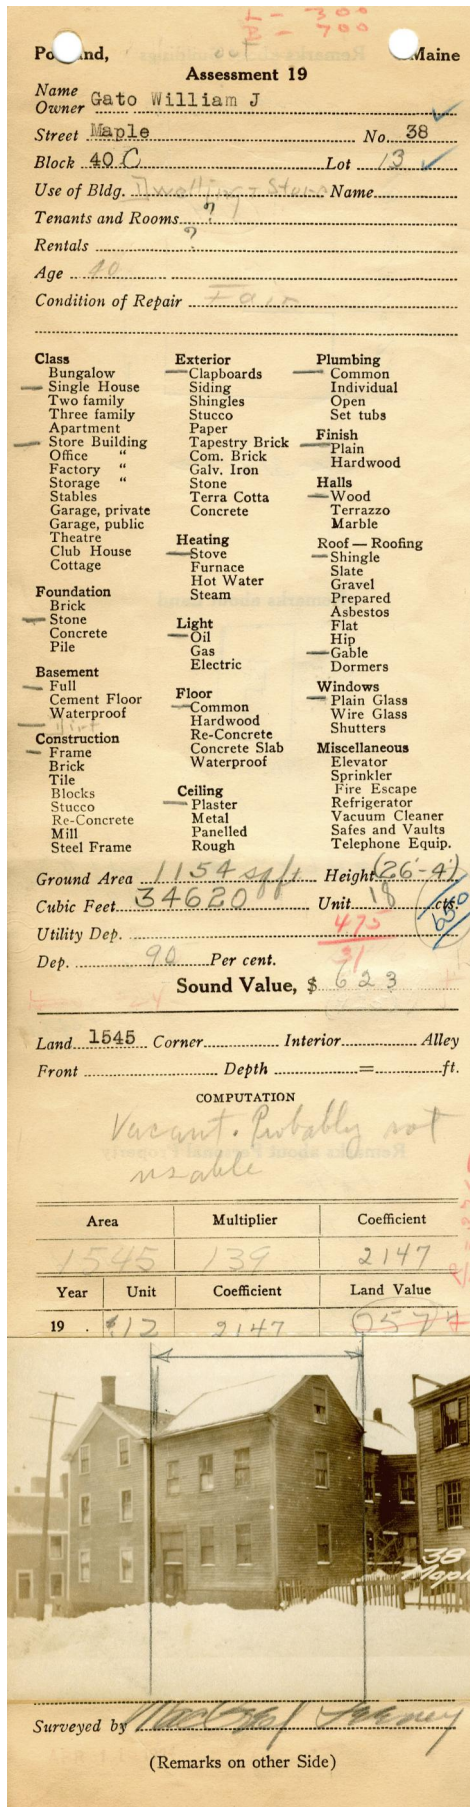 L - 300
B - 700
out
Maine
Assessment 19
Name
Owner Gato William J
Street Maple No. 38
Block 40 C Lot 13
Use of Bldg. Dwelling + Store Name
Tenants and Rooms ?
Rentals ?
Age 40
Condition of Repair Fair
Class
Bungalow
Single House
Two family
Three family
Apartment
Store Building
Office "
Factory "
Storage "
Stables
Garage, private
Garage, public
Theatre
Club House
Cottage
Foundation
Brick
Stone
Concrete
Pile
Basement
Full
Cement Floor
Waterproof
Dirt
Construction
Frame
Brick
Tile
Blocks
Stucco
Re-Concrete
Mill
Steel Frame
Exterior
Clapboards
Siding
Shingles
Stucco
Paper
Tapestry Brick
Com. Brick
Galv. Iron
Stone
Terra Cotta
Concrete
Heating
Stove
Furnace
Hot Water
Steam
Light
Oil
Gas
Electric
Floor
Common
Hardwood
Re-Concrete
Concrete Slab
Waterproof
Ceiling
Plaster
Metal
Panelled
Rough
Plumbing
Common
Individual
Open
Set tubs
Finish
Plain
Hardwood
Halls
Wood
Terrazzo
Marble
Roof — Roofing
Shingle
Slate
Gravel
Prepared
Asbestos
Flat
Hip
Gable
Dormers
Windows
Plain Glass
Wire Glass
Shutters
Miscellaneous
Elevator
Sprinkler
Fire Escape
Refrigerator
Vacuum Cleaner
Safes and Vaults
Telephone Equip.
Ground Area 1154 sq ft Height (26'-4')
Cubic Feet 34620 Unit 18 cts.
650
Utility Dep. 475
31
Dep. 90 Per cent.
Sound Value, $ 623
Land 1545 Corner Interior Alley
Front Depth = ft.
COMPUTATION
Vacant. Probably not
usable
Area Multiplier Coefficient
1545 139 2147
Year Unit Coefficient Land Value
19 . $.12 2147 257
38
Maple
Surveyed by
(Remarks on other Side)